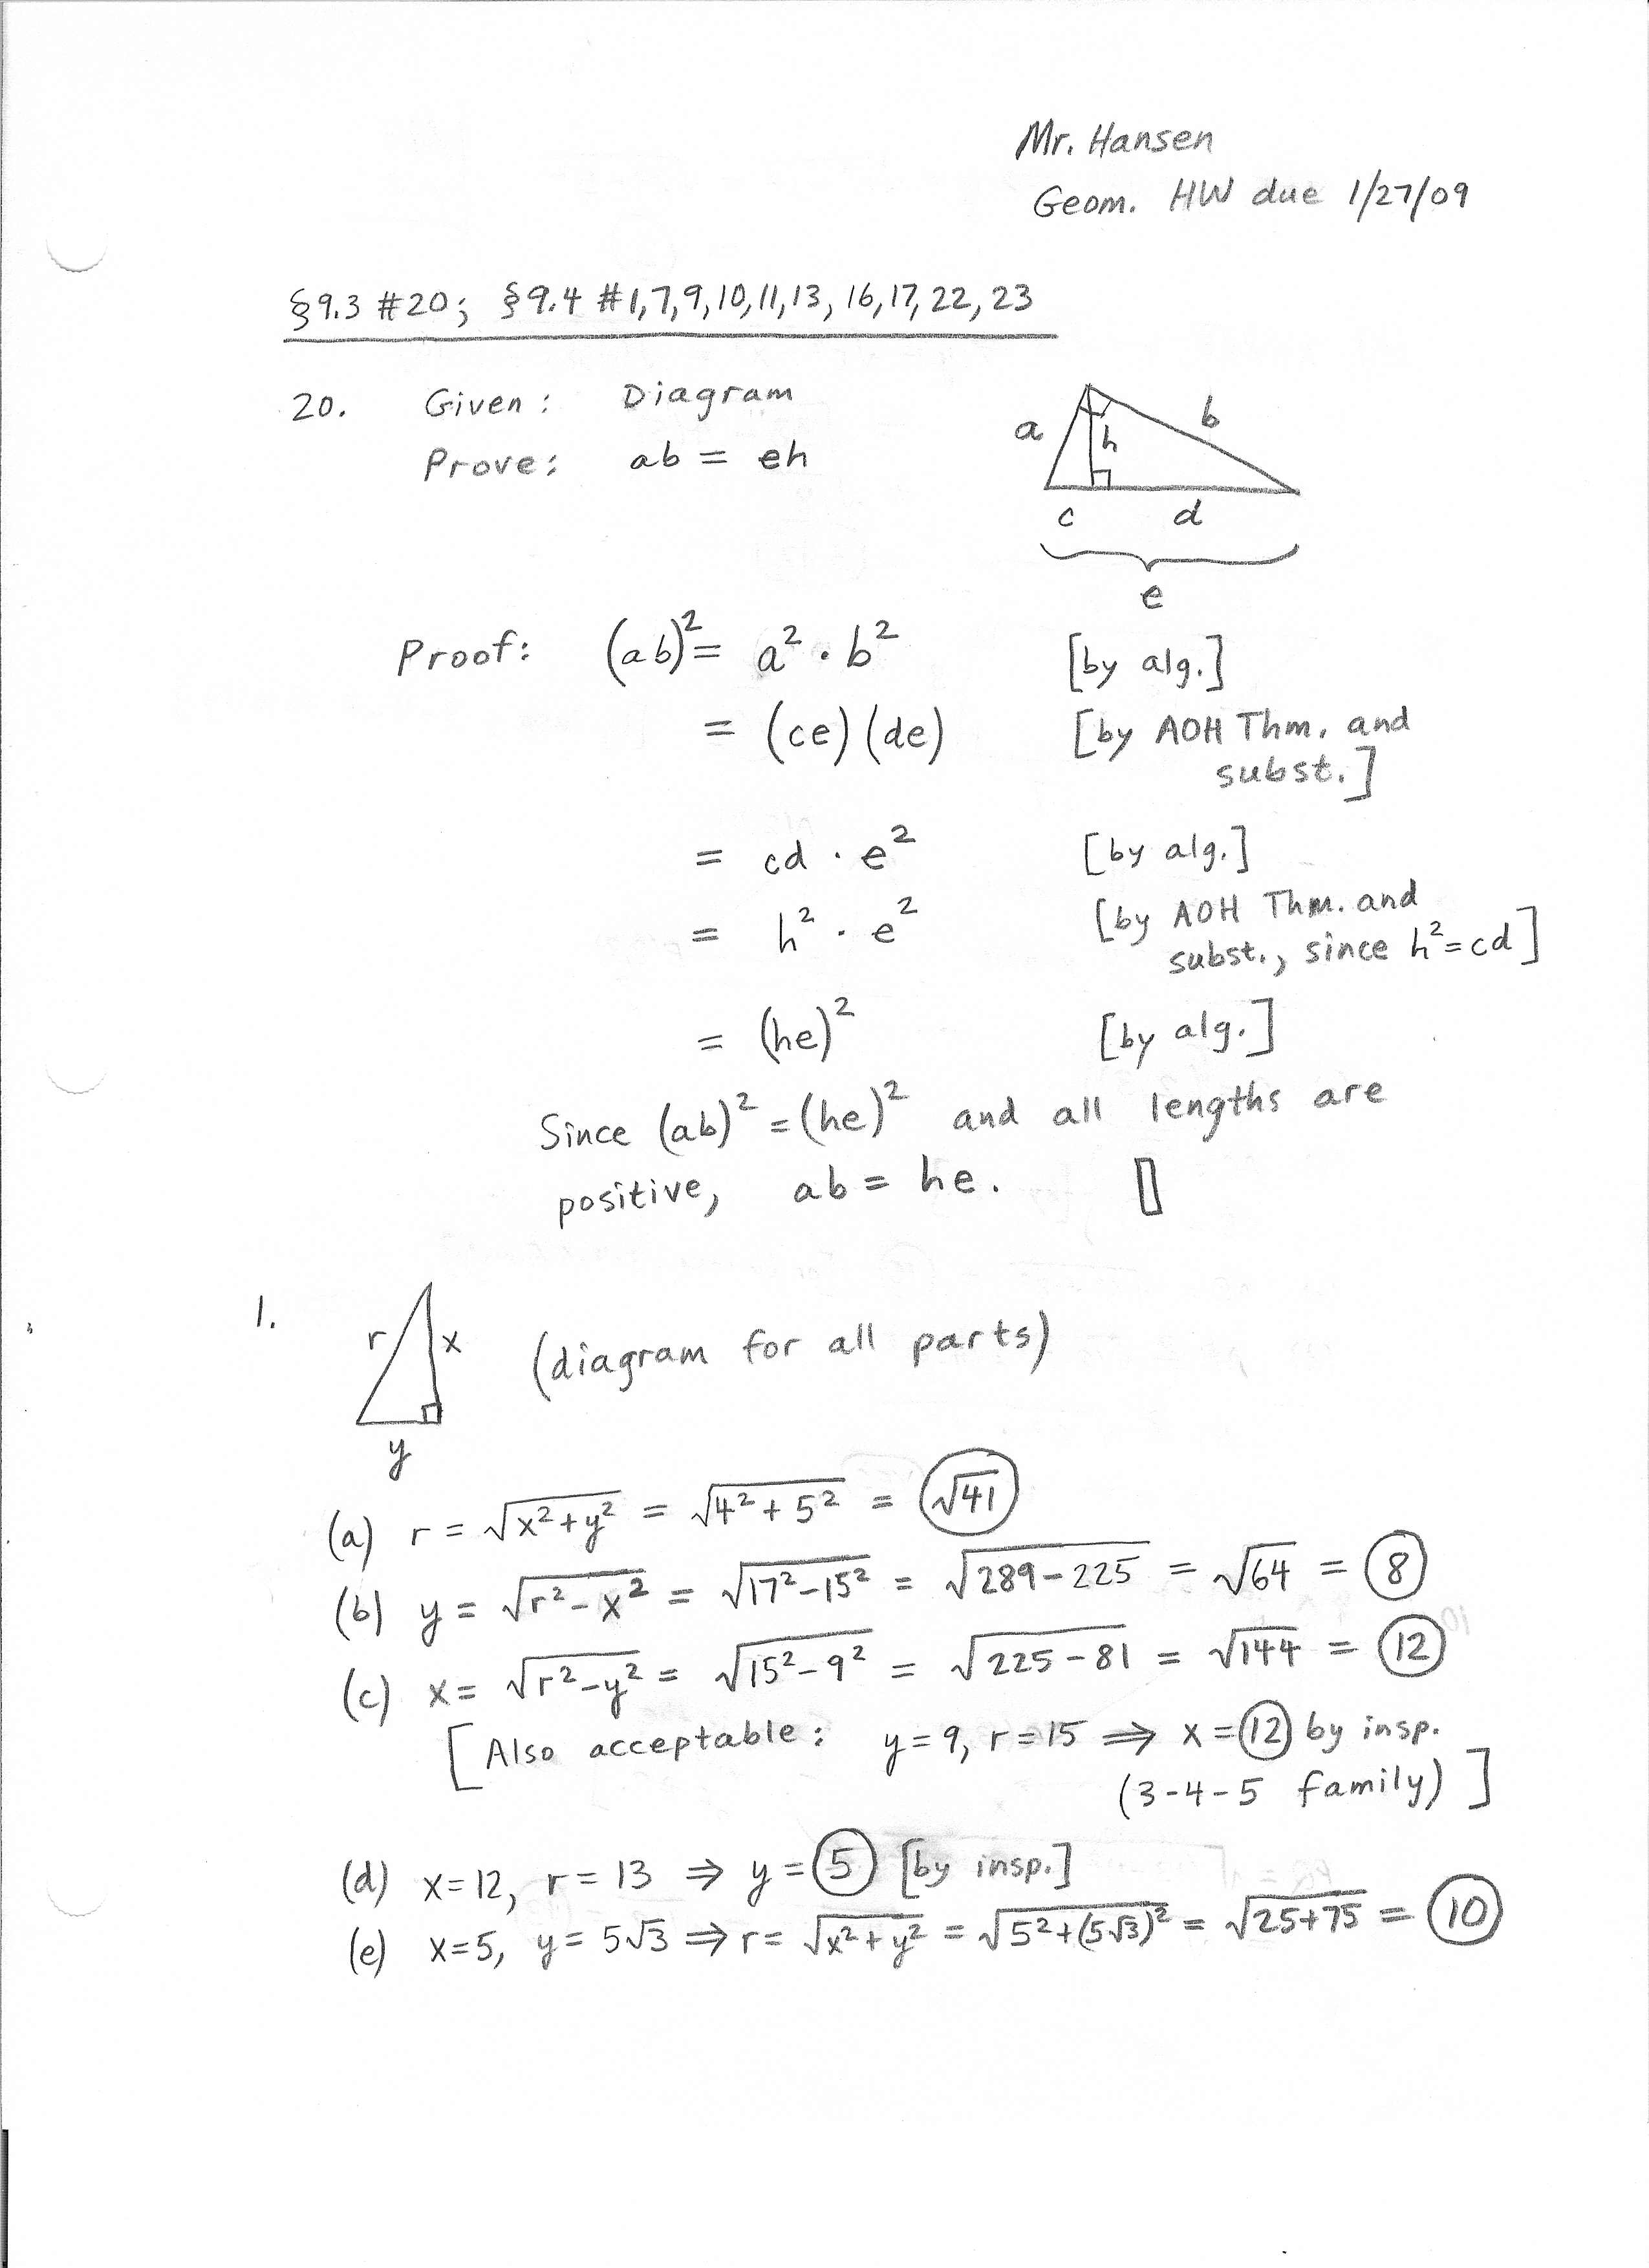 Mr. Hansen
Geom. HW due 1/27/09
§9.3 #20; §9.4 #1,7,9,10,11,13, 16,17, 22, 23
20. Given: Diagram
Prove: ab = eh
a h b
c d
e
Proof: (ab)² = a² · b² [by alg.]
= (ce)(de) [by AOH Thm. and
subst.]
= cd · e² [by alg.]
= h² · e² [by AOH Thm. and
subst., since h²=cd]
= (he)² [by alg.]
Since (ab)² = (he)² and all lengths are
positive, ab = he. ▯
1. r x (diagram for all parts)
y
(a) r = √(x²+y²) = √(4²+5²) = √41
(b) y = √(r²-x²) = √(17²-15²) = √(289-225) = √64 = 8
(c) x = √(r²-y²) = √(15²-9²) = √(225-81) = √144 = 12
[Also acceptable: y=9, r=15 ⇒ x=12 by insp.
(3-4-5 family)]
(d) x=12, r=13 ⇒ y=5 [by insp.]
(e) x=5, y=5√3 ⇒ r= √(x²+y²) = √(5²+(5√3)²) = √(25+75) = 10